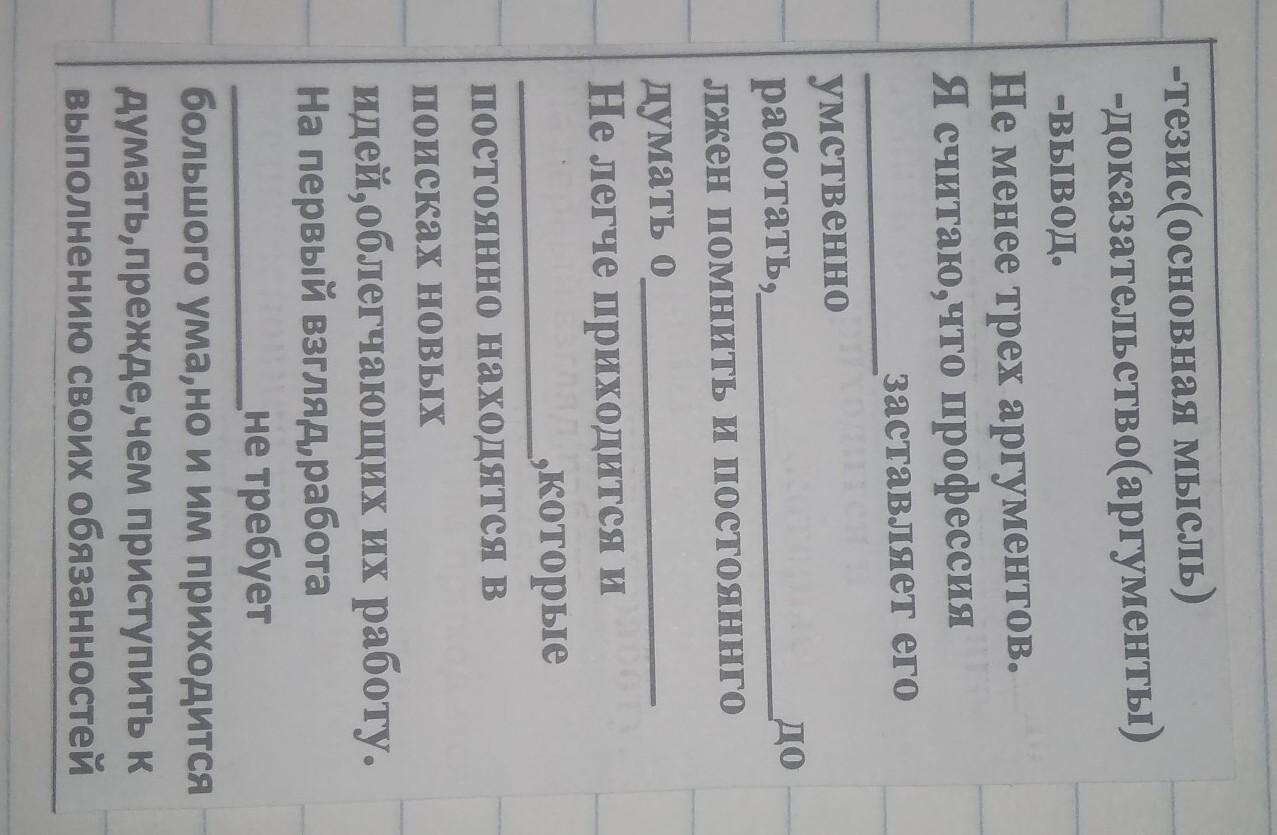 -тезис(основная мысль)
-доказательство(аргументы)
-вывод.
Не менее трех аргументов.
Я считаю,что профессия
____________________заставляет его
умственно
работать,____________________________до
лжен помнить и постояннго
думать о ____________________________
Не легче приходится и
_________________________,которые
постоянно находятся в
поисках новых
идей,облегчающих их работу.
На первый взгляд,работа
_____________________не требует
большого ума,но и им приходится
думать,прежде,чем приступить к
выполнению своих обязанностей